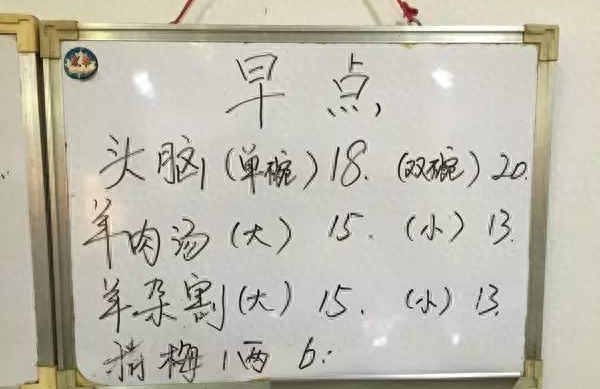 早点
头脑(单碗)18. (双碗)20.
羊肉汤(大) 15. (小)13.
羊杂割(大) 15. (小)13.
梅 1两 6.